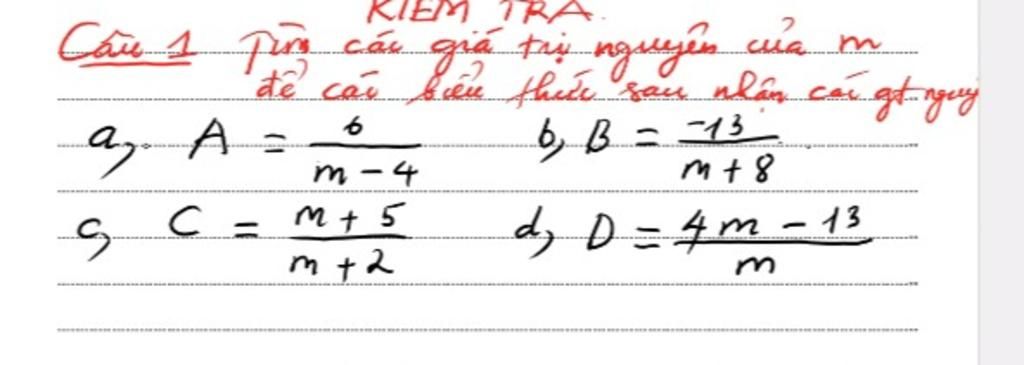 KIỂM TRA.
Câu 1 Tìm các giá trị nguyên của m
để các biểu thức sau nhận các gt nguy
a, A = 6 / (m - 4) b, B = -13 / (m + 8)
c, C = (m + 5) / (m + 2) d, D = (4m - 13) / m